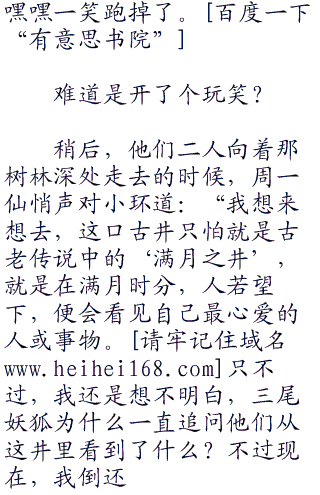 嘿嘿一笑跑掉了。[百度一下
“有意思书院”]
难道是开了个玩笑？
稍后，他们二人向着那
树林深处走去的时候，周一
仙悄声对小环道：“我想来
想去，这口古井只怕就是古
老传说中的‘满月之井’，
就是在满月时分，人若望
下，便会看见自己最心爱的
人或事物。[请牢记住域名
www.heihei168.com]只不
过，我还是想不明白，三尾
妖狐为什么一直追问他们从
这井里看到了什么？不过现
在，我倒还